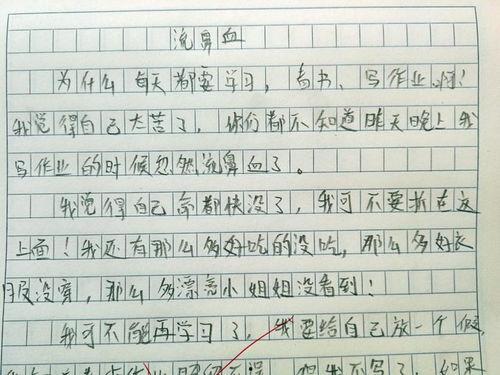 流鼻血
为什么每天都要学习，看书、写作业啊！
我觉得自己太苦了，你们都不知道昨天晚上我
写作业的时候忽然流鼻血了。
我觉得自己命都快没了，我可不要折在这
上面！我还有那么多好吃的没吃，那么多好衣
服没穿，那么多漂亮小姐姐没看到！
我可不能再学习了，我要给自己放一个假，
我不写了，如果